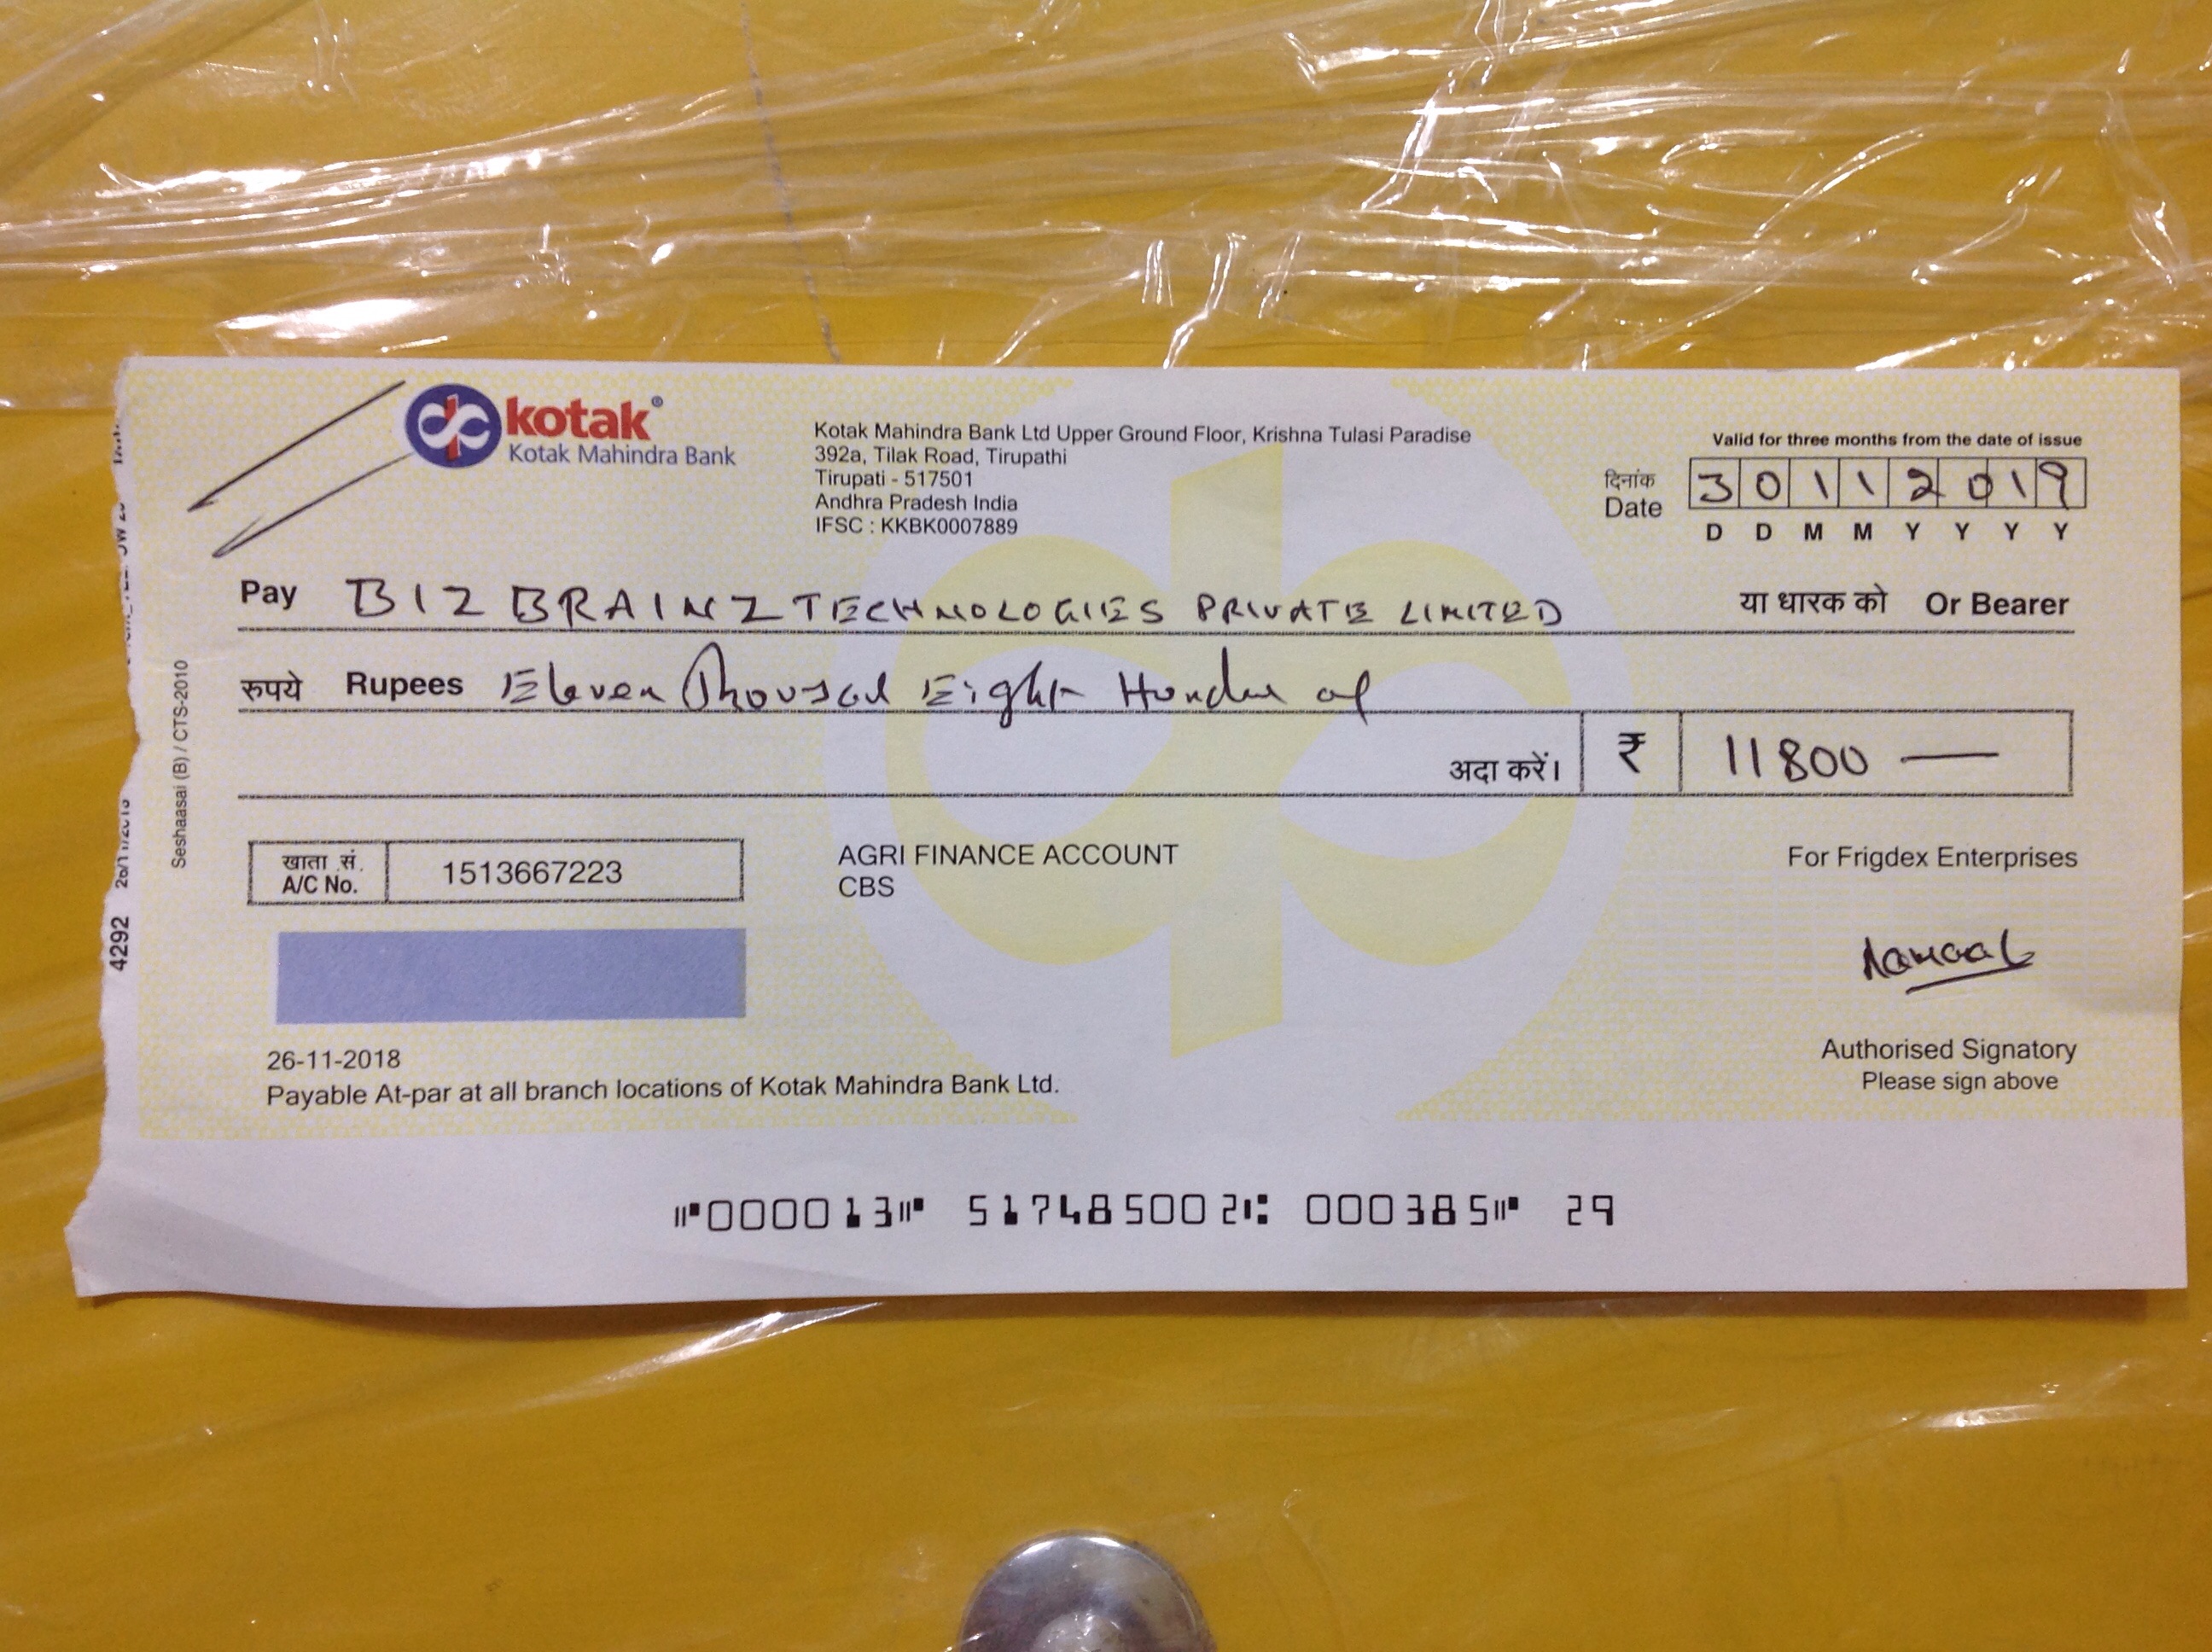 kotak®
Kotak Mahindra Bank
Kotak Mahindra Bank Ltd Upper Ground Floor, Krishna Tulasi Paradise
392a, Tilak Road, Tirupathi
Tirupati - 517501
Andhra Pradesh India
IFSC : KKBK0007889
Valid for three months from the date of issue
दिनांक
Date 30112019
D D M M Y Y Y Y
Pay BIZ BRAINZ TECHNOLOGIES PRIVATE LIMITED या धारक को Or Bearer
रुपये Rupees Eleven Thousand Eight
अदा करें। ₹ 11800 —
खाता सं.
A/C No. 1513667223
AGRI FINANCE ACCOUNT
CBS
For Frigdex Enterprises
26-11-2018
Payable At-par at all branch locations of Kotak Mahindra Bank Ltd.
Authorised Signatory
Please sign above
Seshaasai (B) / CTS-2010
4292
⑈000013⑈ 517485002⑆ 000385⑈ 29